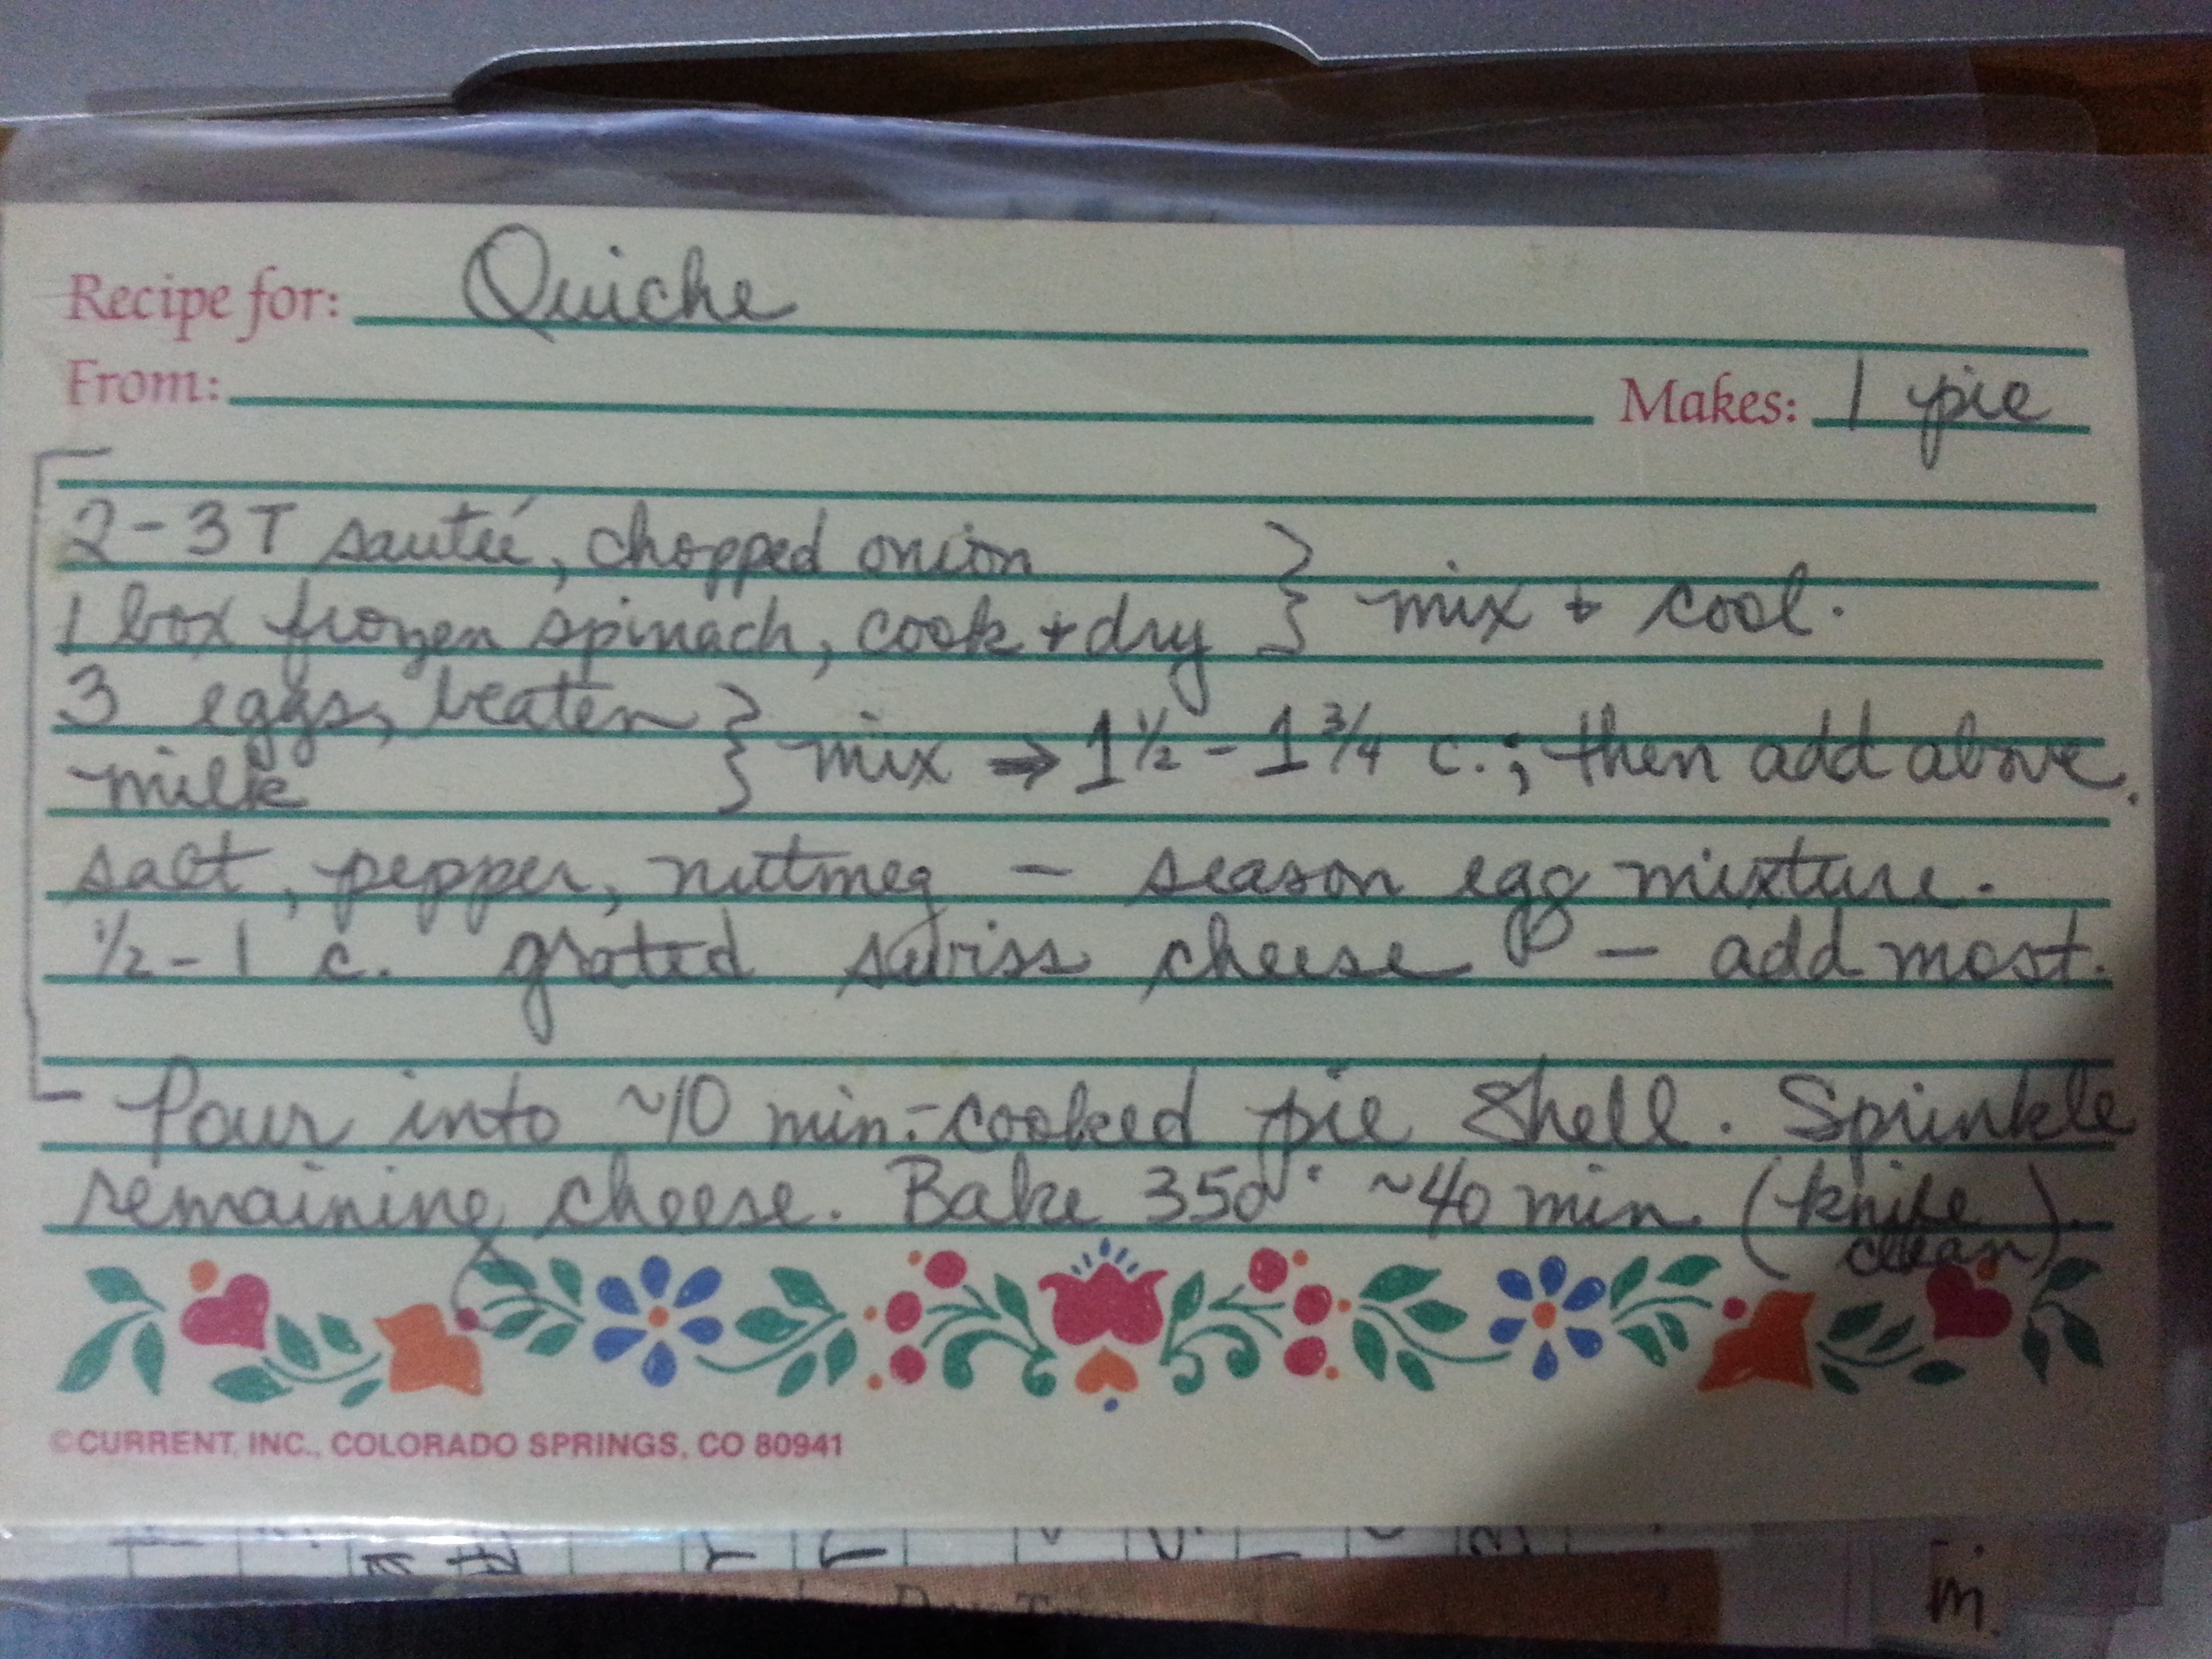 Recipe for: Quiche
From: Makes: 1 pie
2-3 T sauteé, chopped onion } mix + cool.
1 box frozen spinach, cook + dry
3 eggs, beaten } mix → 1 1/2 - 1 3/4 c.; then add above.
milk
salt, pepper, nutmeg - season egg mixture.
1/2 - 1 c. grated swiss cheese - add most.
Pour into ~10 min.-cooked pie shell. Sprinkle
remaining cheese. Bake 350° ~40 min. (knife
clean).
©CURRENT, INC., COLORADO SPRINGS, CO 80941
m.